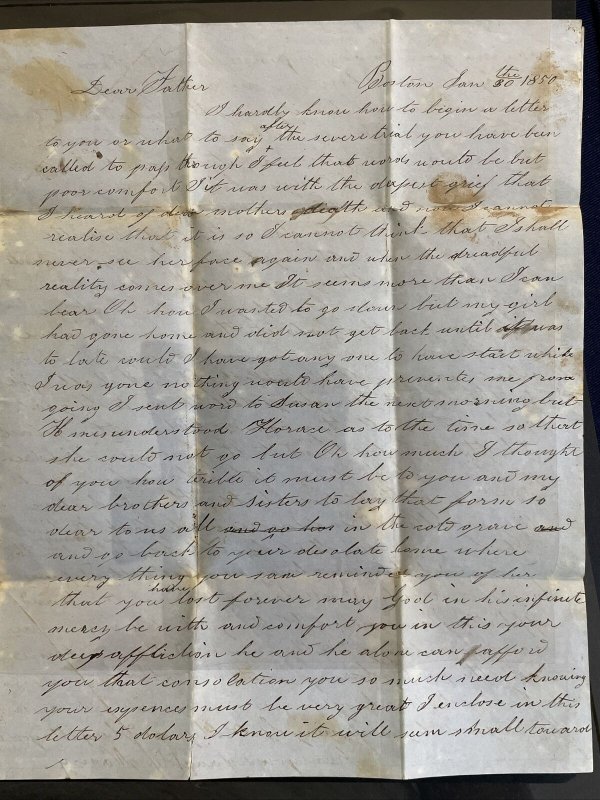 Boston Jan 30 the 1850
Dear Father
I hardly know how to begin a letter
to you or what to say after the severe trial you have been
called to pass through I feel that words would be but
poor comfort it was with the depest grief that
I heard of dear mothers death and now I cannot
realise that it is so I cannot think that I shall
never see her face again and when the dreadful
reality comes over me It seems more than I can
bear Oh how I wanted to go down but my girl
had gone home and did not get back until it was
to late could I have got any one to have staid while
I was gone nothing would have prevented me from
going I sent word to Susan the next morning but
misunderstood Horace as to the time so that
she could not go but Oh how much I thought
of you how terible it must be to you and my
dear brothers and sisters to lay that form so
dear to us all and go has in the cold grave and
and go back to your desolate home where
every thing you saw reminded you of her
that you have lost forever may God in his infinite
mercy be with and comfort you in this your
deep affliction he and he alone can afford
you that consolation you so much need knowing
your expences must be very great I enclose in this
letter 5 dolars I know it will seem small toward